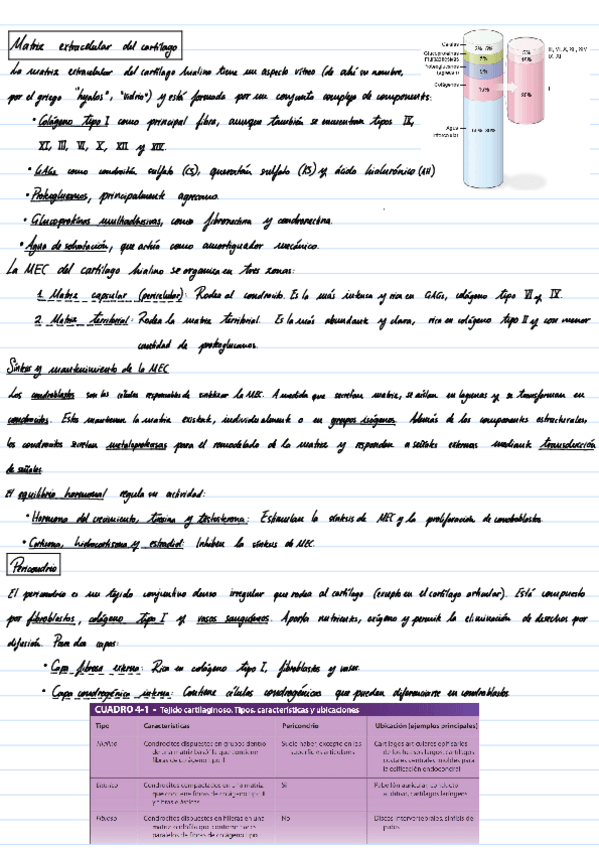 Matriz extracelular del cartílago
La matriz extracelular del cartílago hialino tiene un aspecto vítreo (de ahí su nombre,
por el griego "hyalos", "vidrio") y está formada por un conjunto complejo de componentes:
• Colágeno tipo I como principal fibra, aunque también se encuentran tipos IX,
XI, III, VI, X, XII y XIV.
• GAGs como condroitín sulfato (CS), queratán sulfato (KS) y ácido hialurónico (AH)
• Proteoglucanos, principalmente agrecano.
• Glucoproteínas multiadhesivas, como fibronectina y condronectina.
• Agua de solvatación, que actúa como amortiguador mecánico.
La MEC del cartílago hialino se organiza en tres zonas:
1. Matriz capsular (pericelular): Rodea al condrocito. Es la más intensa y rica en GAGs, colágeno tipo VI y IX.
2. Matriz territorial: Rodea la matriz territorial. Es la más abundante y clara, rica en colágeno tipo II y con menor
cantidad de proteoglucanos.
Síntesis y mantenimiento de la MEC
Los condroblastos son las células responsables de sintetizar la MEC. A medida que secretan matriz, se aíslan en lagunas y se transforman en
condrocitos. Estos mantienen la matriz existente, individualmente o en grupos isógenos. Además de los componentes estructurales,
los condrocitos secretan metaloproteasas para el remodelado de la matriz y responden a señales externas mediante transducción
de señales.
El equilibrio hormonal regula su actividad:
• Hormona del crecimiento, tiroxina y testosterona: Estimulan la síntesis de MEC y la proliferación de condroblastos.
• Cortisona, hidrocortisona y estradiol: Inhiben la síntesis de MEC.
Pericondrio
El pericondrio es un tejido conjuntivo denso irregular que rodea al cartílago (excepto en el cartílago articular). Está compuesto
por fibroblastos, colágeno tipo I y vasos sanguíneos. Aporta nutrientes, oxígeno y permite la eliminación de desechos por
difusión. Posee dos capas:
• Capa fibrosa externa: Rica en colágeno tipo I, fibroblastos y vasos.
• Capa condrogénica interna: Contiene células condrogénicas que pueden diferenciarse en condroblastos.
Células
Glucoproteínas
multiadhesivas
Proteoglucanos
(agrecano)
Colágenos
Agua
intersticial
CUADRO 4-1 • Tejido cartilaginoso. Tipos, características y ubicaciones
Tipo Características Pericondrio Ubicación (ejemplos principales)
Hialino Condrocitos dispuestos en grupos dentro Suele haber, excepto en las Cartílagos articulares, epífisarios
Elástico Condrocitos compactados en una matriz Sí Pabellón auricular, conducto
auditivo, cartílagos laríngeos
Fibroso Condrocitos dispuestos en hileras en una No Discos intervertebrales, sínfisis de
pubis